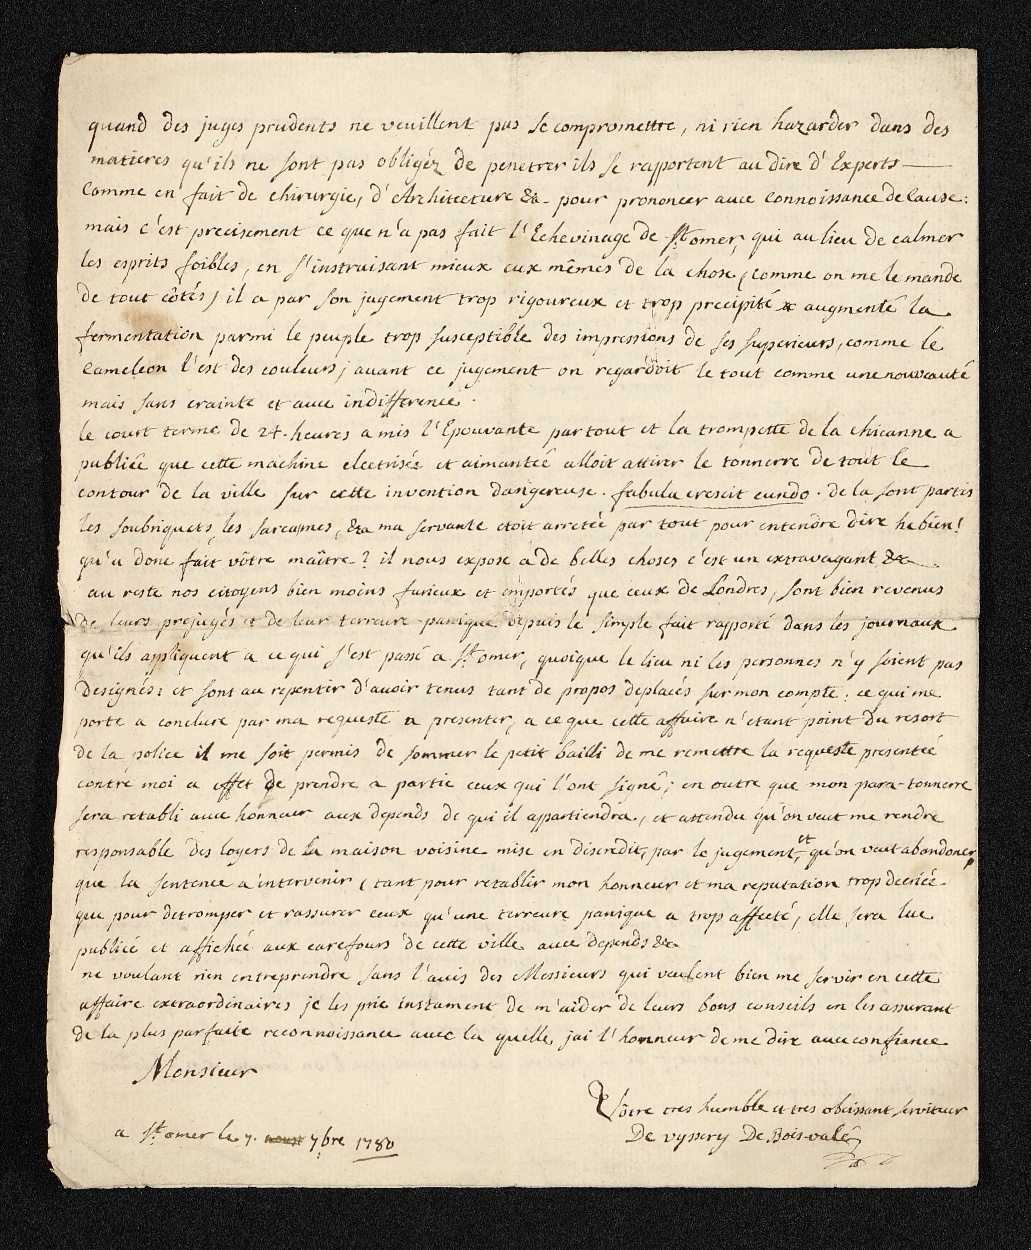 quand des juges prudents ne veuillent pas se compromettre, ni rien hazarder dans des
matieres qu'ils ne sont pas obligéz de penetrer ils se rapportent au dire d'Experts —
comme en fait de chirurgie, d'Architecture &a - pour prononcer avec connoissance de cause:
mais c'est precisement ce que n'a pas fait l'Echevinage de St omer, qui au lieu de calmer
les esprits foibles, en s'instruisant mieux eux mêmes de la chose, (comme on me le mande
de tout côtés) il a par son jugement trop rigoureux et trop precipité augmenté la
fermentation parmi le peuple trop susceptible des impressions de ses superieurs, comme le
cameleon l'est des couleurs; avant ce jugement on regardoit le tout comme une nouveauté
mais sans crainte et avec indifference.
le court terme de 24. heures a mis l'Epouvante partout et la trompette de la chicanne a
publiée que cette machine electrisée et aimantée alloit attirer le tonnerre de tout le
contour de la ville sur cette invention dangereuse. fabula crescit eundo. de la sont partis
les soubriquets, les sarcasmes, &a ma servante etoit arretée par tout pour entendre dire he bien!
qu'a donc fait vôtre maître? il nous expose a de belles choses c'est un extravagant &a
au reste nos citoyens bien moins furieux et emportés que ceux de Londres, sont bien revenus
de leurs prejugés et de leur terreure panique depuis le simple fait rapporté dans les journaux
qu'ils appliquent a ce qui s'est passé a St omer, quoique le lieu ni les personnes n'y soient pas
designés: et sont au repentir d'avoir tenus tant de propos deplacés sur mon compte: ce qui me
porte a conclure par ma requeste a presenter, a ce que cette affaire n'etant point du resort
de la police il me soit permis de sommer le petit bailli de me remettre la requeste presentée
contre moi a effet de prendre a partie ceux qui l'ont signé; en outre que mon para-tonnerre
sera retabli avec honneur aux depends de qui il appartiendra, et attendu qu'on veut me rendre
responsable des loyers de la maison voisine mise en discredit, par le jugement, et qu'on veut abandoner,
que la sentence a intervenir (tant pour retablir mon honneur et ma reputation trop decriée
que pour detromper et rassurer ceux qu'une terreure panique a trop affecté, elle sera lue
publiée et affichée aux carefours de cette ville avec depends &a
ne voulant rien entreprendre sans l'avis des Messieurs qui veulent bien me servir en cette
affaire extraordinaires je les prie instament de m'aider de leurs bons conseils en les assurant
de la plus parfaite reconnoissance avec la quelle, jai l'honneur de me dire avec confiance
Monsieur
Vôtre tres humble et tres obeissant serviteur
a St omer le 7. 7bre 1780
De vyssery De Bois-valé